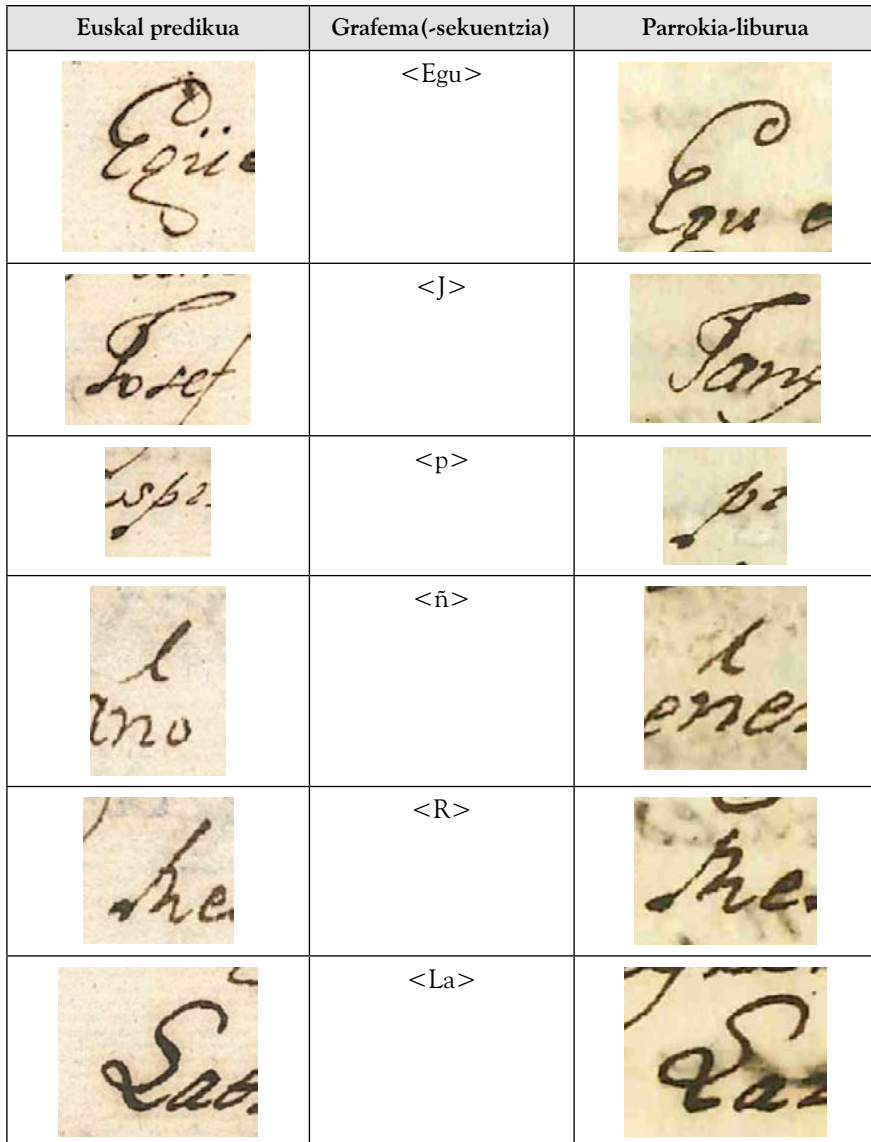 Euskal predikua Grafema(-sekuentzia) Parrokia-liburua
Egüe <Egu> Egu e
Josef <J> Jang
spi <p> pi
ano <ñ> ene
Re <R> Re
Lab <La> La